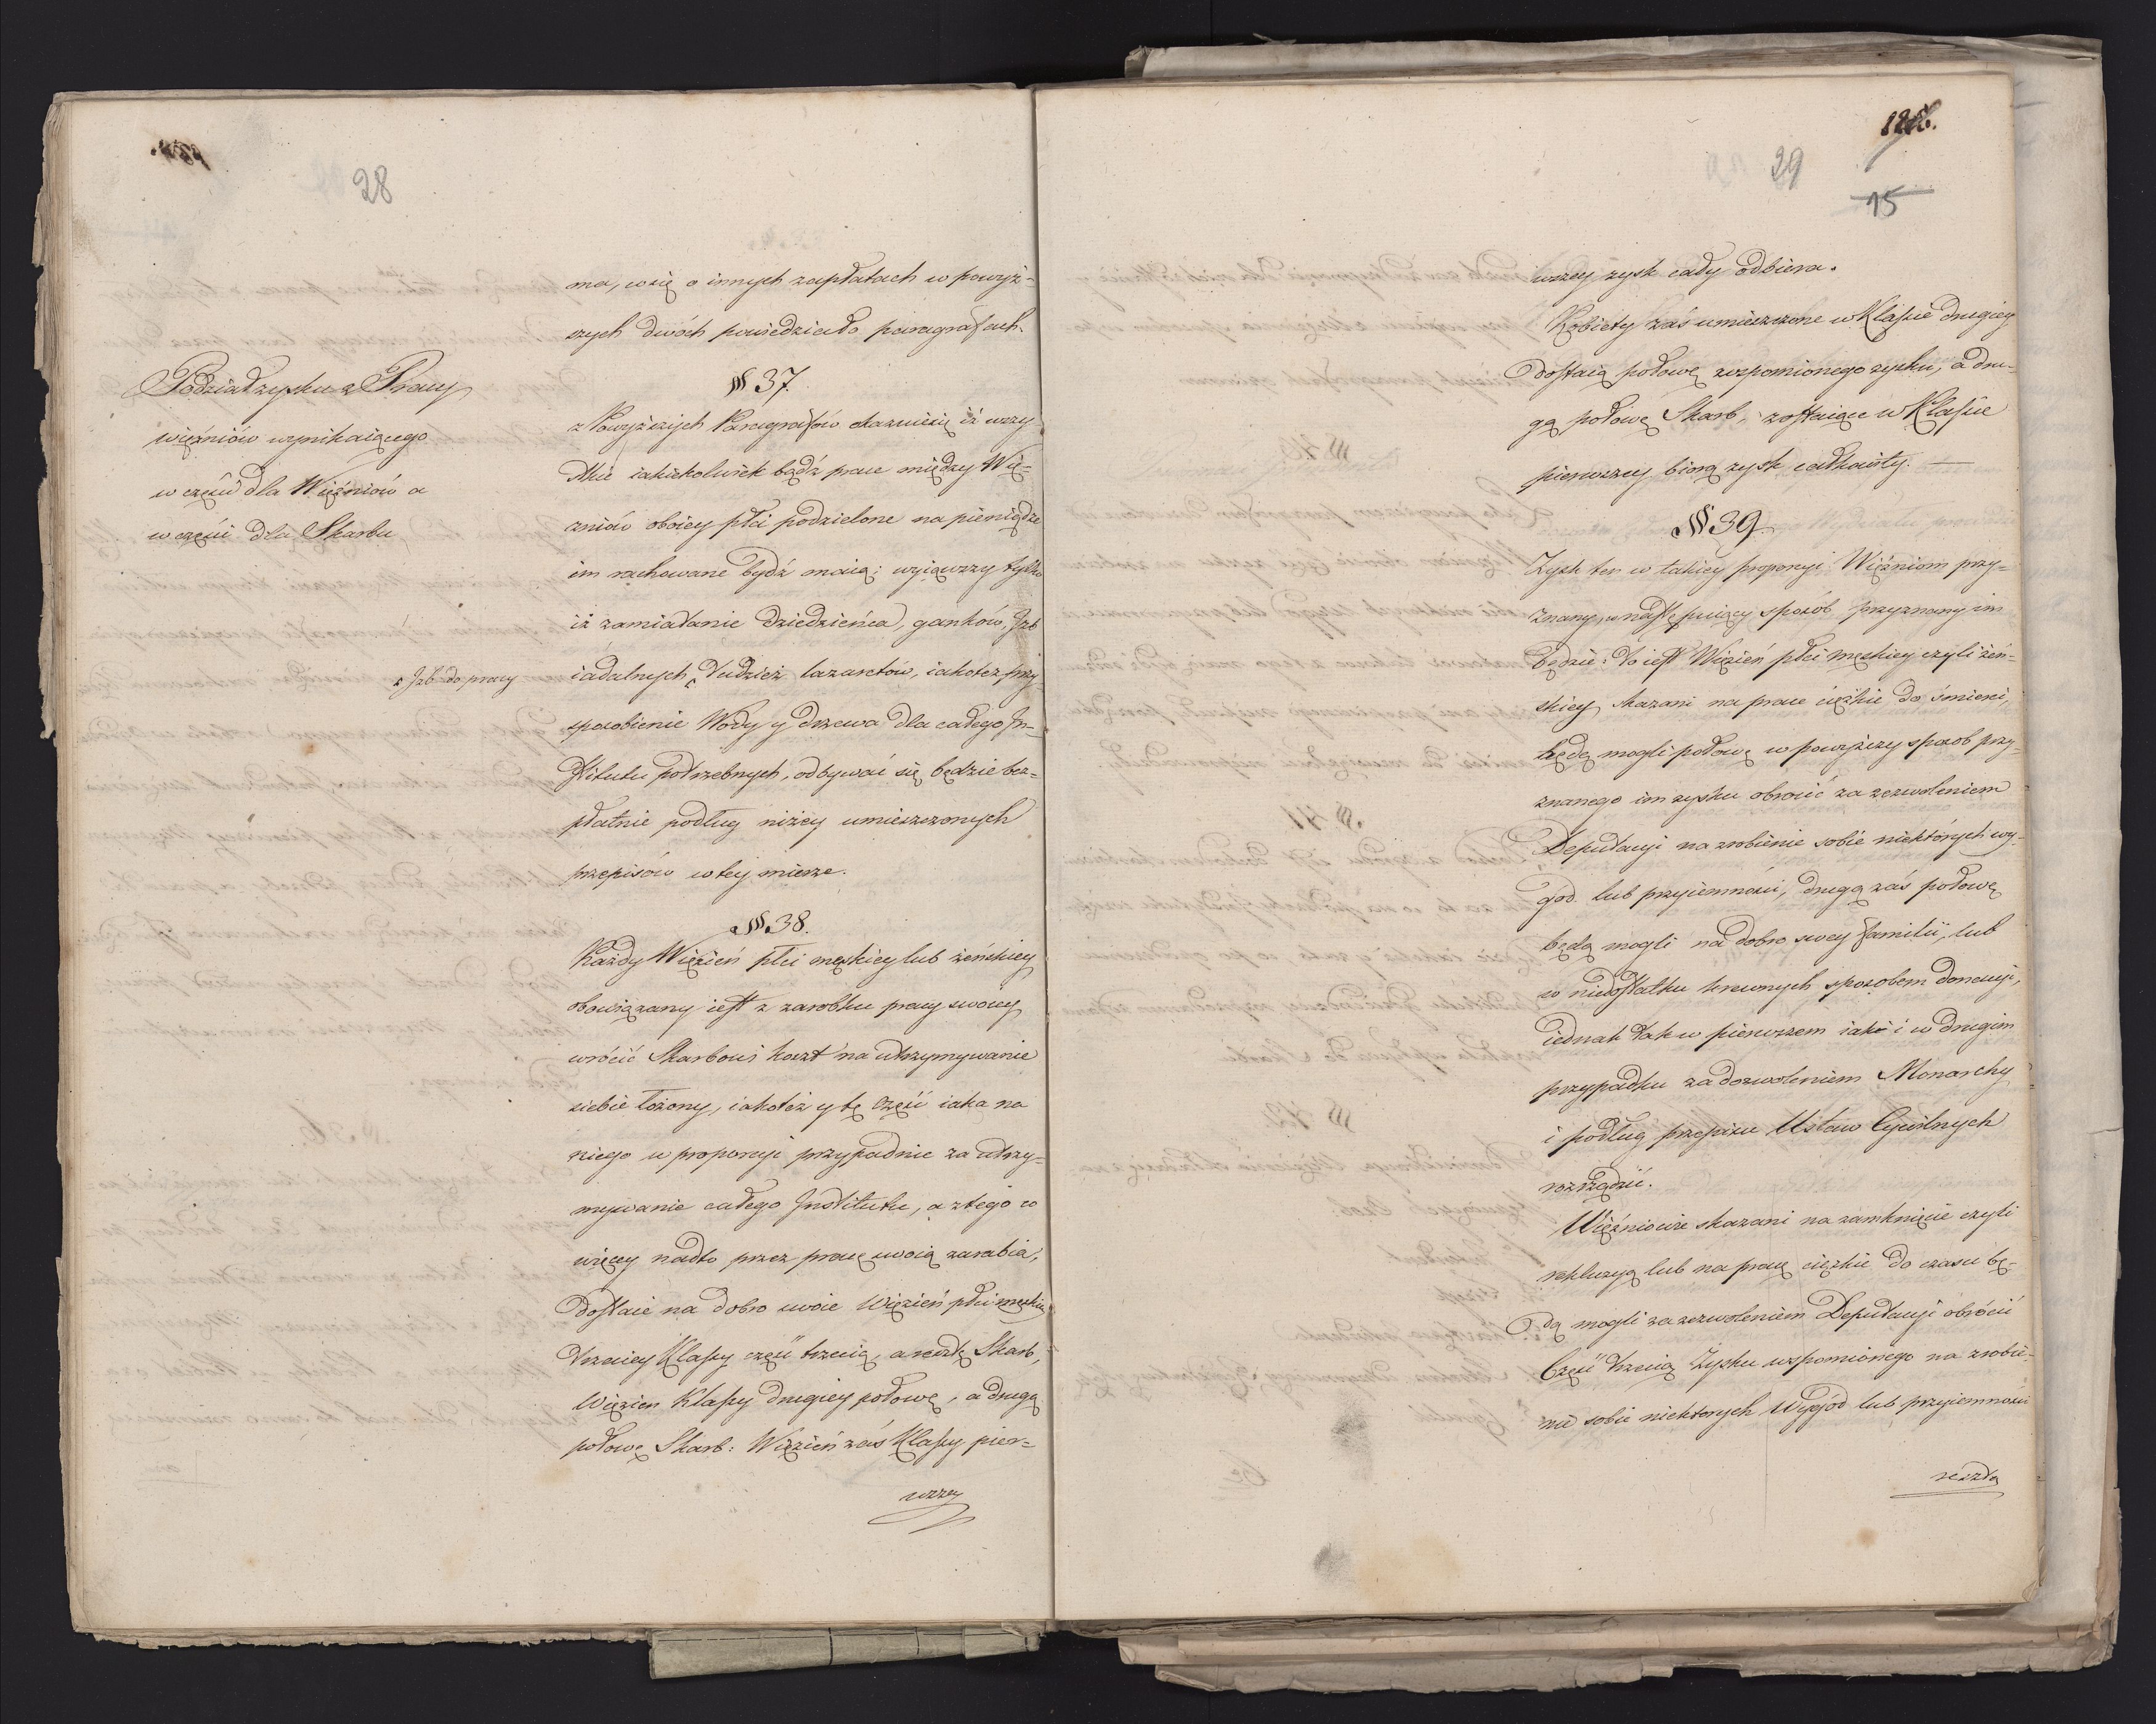 28
ma, co się o innych zapłatach w powyż-
szych dwóch powiedziało paragrafach.
Podział zysku z Pracy
więźniów wynikaiącego
w części dla Więźniów a
w części dla Skarbu
§ 37.
z Powyższych Paragrafów okazuie się iż wszy-
stkie iakiekolwiek bądź prace między Wię-
zniów oboiey płci podzielone na pieniądze
im rachowane bydź maią; wyiąwszy tylko
iż zamiadanie dziedzieńca, ganków, Izb
iadalnych, tudzież lazaretów, iakoteż przy-
Izb do pracy
sposobienie Wody y drzewa dla całego In-
stitutu potrzebnych, odbywać się będzie bez-
płatnie podług niżey umieszczonych
przepisów w tey mierze.
§ 38.
Każdy Więzień płci męskiey lub żeńskiey
obowiązany iest z zarobku pracy swoiey
wrócić Skarbowi koszt na utrzymywanie
siebie łożony, iakoteż y tę część iaka na
niego w proporcyi przypadnie za utrzy-
mywanie całego Institutu, a z tego co
więcey nadto przez pracę swoią zarabia,
dostaie na dobro swoie Więzień płci męskiey
trzeciey Klassy część trzecią, a resztę Skarb,
Więzien Klassy drugiey połowę, a drugą
połowę Skarb: Więzień zaś Klassy pier-
wszey
29
15
wszey zysk cały odbiera.
Kobiety zaś umieszczone w Klassie drugiey
dostaią połowę wspomionego zysku, a dru-
gą połowę Skarb, zostaiące w Klassie
pierwszey biorą zysk całkowity.
§ 39.
Zysk ten w takiey proporcyi Więźniom przy-
znany, w następuiący sposób przyznany im
będzie: to iest Więzień płci męskiey czyli żeń-
skiey, skazani na prace cięźkie do śmierci,
będą mogli połowę w powyższy sposob przy-
znanego im zysku obrócić za zezwoleniem
Deputacyi na zrobienie sobie niektórych wy-
gód lub przyiemności, drugą zaś połową
będą mogli na dobro swey familii, lub
w niedostatku krewnych sposobem donacyi,
iednak tak w pierwszem iako i w drugim
przypadku za dozwoleniem Monarchy
i podług przepisu Ustaw Cywilnych
rozrządzić.
Więźniowie skazani na zamknięcie czyli
rekluzyą lub na pracę cięzkie do czasu bę-
dą mogli za zezwoleniem Deputacyi obrócić
Część trzecią Zysku wspomionego na zrobie-
nie sobie niektorych Wygód lub przyiemności
resztą